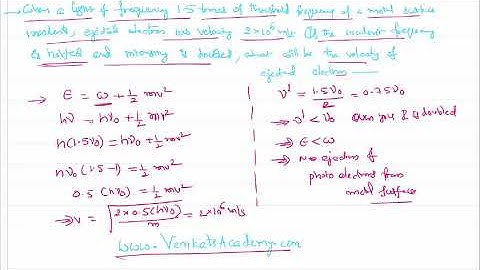 → when a light of frequency 1.5 times of threshold frequency of a metal surface
incidents, ejected electron has velocity 2×10⁶ m/s. If the incident frequency
is halfed and intensity is doubled, what will be the velocity of
ejected electron —
→ E = ω + ½ mv²
hν = hν₀ + ½ mv²
h(1.5ν₀) = hν₀ + ½ mv²
hν₀(1.5-1) = ½ mv²
0.5 (hν₀) = ½ mv²
⇒ v = √(2×0.5(hν₀)/m) = 2×10⁶ m/s
ν' = 1.5ν₀/2 = 0.75ν₀
⇒ ν' < ν₀ even is doubled
⇒ E < ω
⇒ No ejection of
photo electrons from
metal surface
www.VenkatsAcademy.com